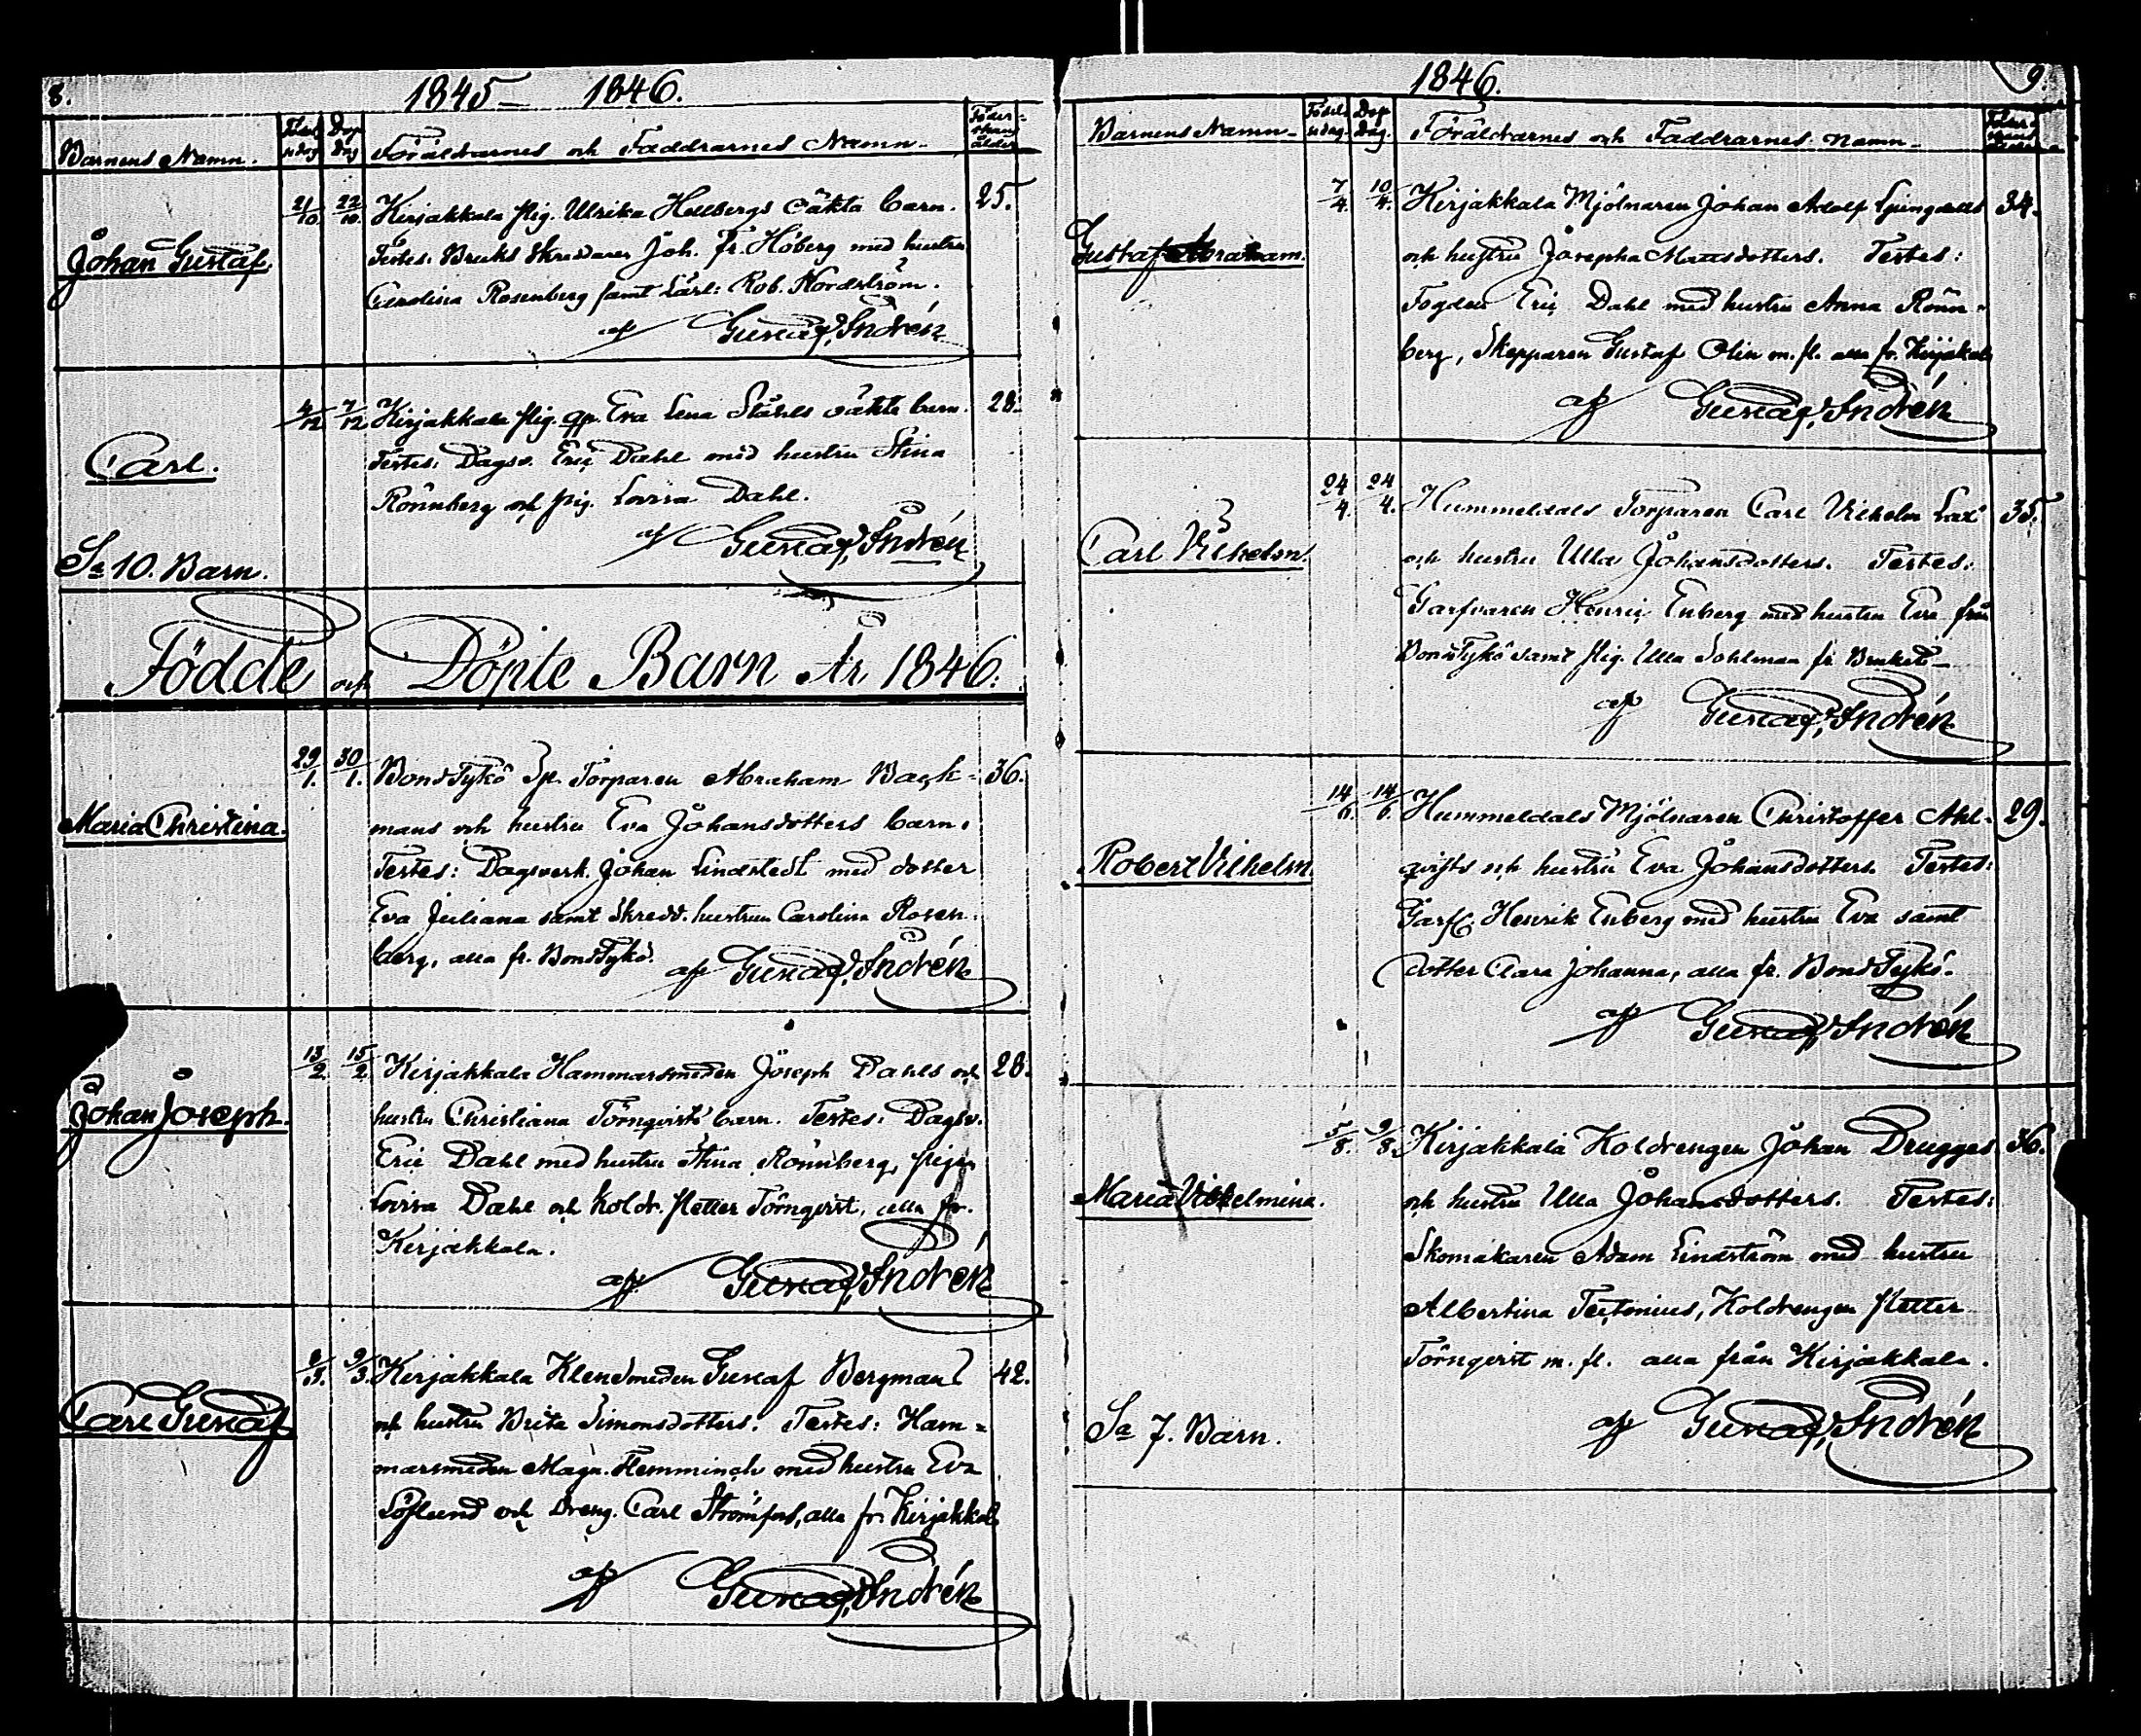 8.
1845 — 1846.
Barnens Namn.
Födelsedag
Dop Dag
Föräldrarnes och Faddrarnes Namn.
Föderskans ålder
Johan Gustaf.
21/10
22/10.
Kirjakkala pig. Ulrika Hellbergs oäkta barn.
25.
Testes: Bruks Skreddaren Joh. Fr. Höberg med hustru
Carolina Rosenberg samt Lärl: Rob. Nordström.
af Gustaf Andrén
Carl.
4/12
7/12
Kirjakkala pig. Eva Lena Ståhls oäkta barn.
28.
Testes: Dagsv. Eric Dahl med hustru Stina
Rönnberg och pig. Lovisa Dahl.
af Gustaf Andrén
Sa 10. Barn.
Födde och Döpte Barn År 1846.
Maria Christina.
29/1.
30/1.
BondTykö Sp. Torparen Abraham Back-
36.
mans och hustru Eva Johansdotters barn.
Testes: Dagsverk. Johan Lindstedt med dotter
Eva Juliana samt Skredd. hustrun Carolina Rosen-
berg, alla fr. BondTykö.
af Gustaf Andrén
Johan Joseph.
13/2
15/2
Kirjakkala Hammarsmeden Joseph Dahls och
28.
hustru Christiana Törnqvists barn. Testes: Dagsv.
Eric Dahl med hustru Stina Rönnberg, pigan
Lovisa Dahl och Koldr. Petter Törnqvist, alla fr.
Kirjakkala.
af Gustaf Andrén
Carl Gustaf
9/3.
Kirjakkala Klensmeden Gustaf Bergmans
42.
och hustru Brita Simonsdotters. Testes: Ham-
marsmeden Magn. Flemminch med hustru Eva
Löflund och Dreng. Carl Strömfors, alla fr. Kirjakkala
af Gustaf Andrén
9.
1846.
Barnens Namn.
Födelsedag.
Dop Dag.
Föräldrarnes och Faddrarnes namn.
Föderskans
Gustaf Abraham.
7/4.
10/4.
Kirjakkala Mjölnaren Johan Adolf Ljungdells
34.
och hustru Josepha Mattsdotters. Testes:
Fogden Eric Dahl med hustru Anna Rönn-
berg, Skepparen Gustaf Olin m. fl. alla fr. Kirjakala
af Gustaf Andrén
Carl Vilhelm.
24/4.
24/4.
Hummeldals Torparen Carl Vilhelm Lax
35.
och hustru Ulla Johansdotters. Testes:
Garfvaren Henric Enberg med hustru Eva från
BondTykö samt pig. Ulla Sohlman fr. Bruket—
af Gustaf Andrén
Robert Vilhelm
14/6.
14/6.
Hummeldals Mjölnaren Christoffer Ahl-
29.
qvists och hustru Eva Johansdotters. Testes:
Garf. Henrik Enberg med hustru Eva samt
dotter Clara Johanna, alla fr. BondTykö.
af Gustaf Andrén
Maria Vilhelmina.
5/8.
9/8.
Kirjakkala Koldrengen Johan Drugges
36.
och hustru Ulla Johansdotters. Testes:
Skomakaren Adam Lindström med hustru
Albertina Tectonius, Koldrengen Petter
Törnqvist m. fl. alla från Kirjakkala.
af Gustaf Andrén
Sa 7. Barn.